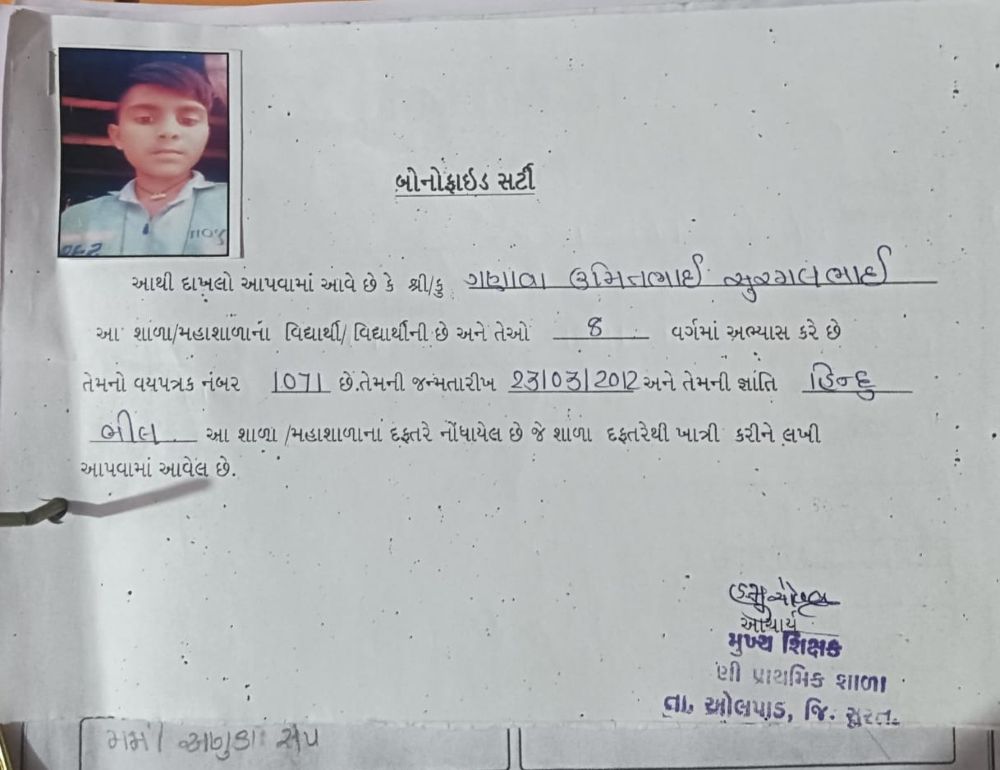 બોનોફાઇડ સર્ટી
આથી દાખલો આપવામાં આવે છે કે શ્રી/કુ ગણાવા ઉમિતભાઈ સુરમલભાઈ
આ શાળા/મહાશાળાના વિદ્યાર્થી/ વિદ્યાર્થીની છે અને તેઓ 8 વર્ગમાં અભ્યાસ કરે છે
તેમનો વયપત્રક નંબર 1071 છે.તેમની જન્મતારીખ 23/03/2012 અને તેમની જ્ઞાતિ હિન્દુ
ભીલ આ શાળા /મહાશાળાનાં દફતરે નોંધાયેલ છે જે શાળા દફતરેથી ખાત્રી કરીને લખી
આપવામાં આવેલ છે.
આચાર્ય
મુખ્ય શિક્ષક
ણી પ્રાથમિક શાળા
તા. ઓલપાડ, જિ. સુરત.